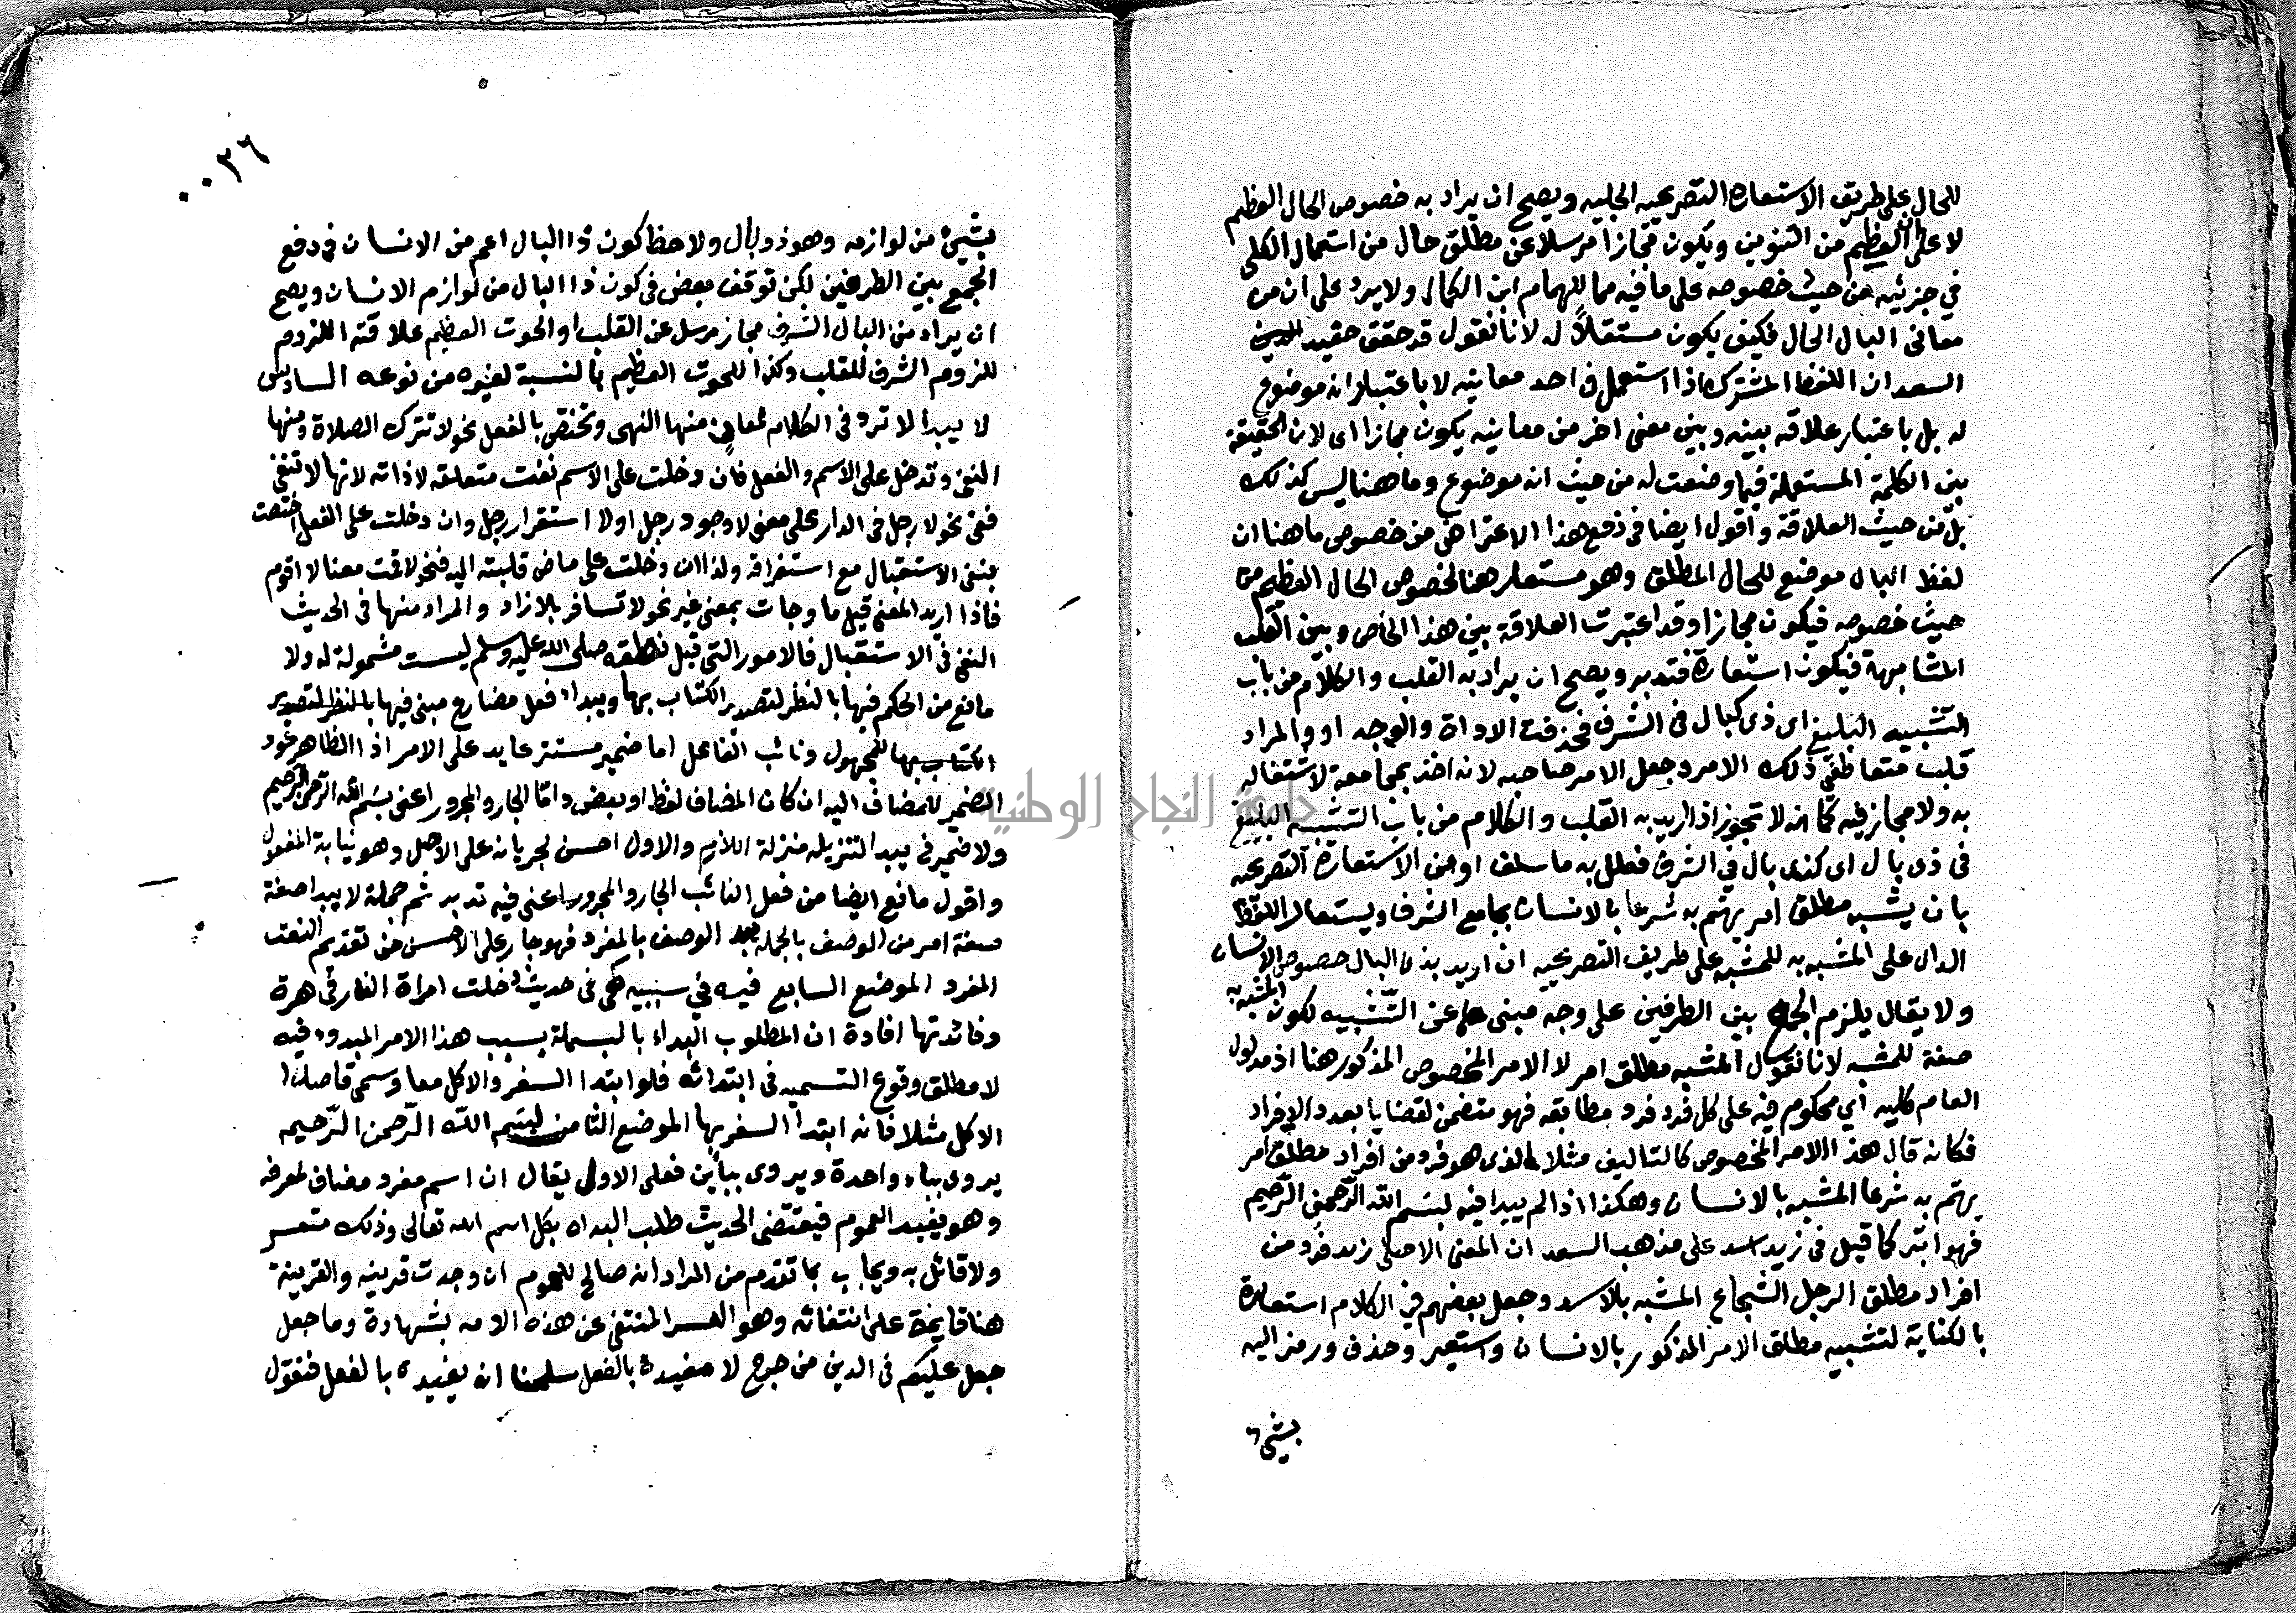 للحال على طريق الاستعارة التصريحيه الجليه ويصح ان يراد به خصوص الحال العظيم
لا على ان العظيم من التنوين ويكون مجازا مرسلا عن مطلق حال من استعمال الكلى
في جزئيه من حيث خصوصه على ما فيه مما للهمام ابن الكمال ولا يرد على ان من
معانى البال الحال فكيف يكون مستقلا له لانا نقول قد حقق حفيد
السعد ان اللفظ المشترك اذا استعمل في احد معانيه لا باعتبار انه موضوع
له بل باعتبار علاقه بينه وبين معنى اخر من معانيه يكون مجازا اى لان الحقيقة
بين الكلمة المستعملة فيما وضعت له من حيث انه موضوع وما هنا ليس كذلك
بل من حيث العلاقة واقول ايضا في دفع هذا الاعتراض من خصوص ما هنا ان
لفظ البال موضع للحال المطلق وهو مستعار هنا لخصوص الحال العظيم من
حيث خصوصه فيكون مجازا وقد اعتبرت العلاقة بين هذا الخاص وبين القلب
المشابهة فيكون استعارة فتدبر ويصح ان يراد به القلب والكلام من باب
التشبيه البليغ اى ذى كبال في الشرف فحذفت الاداة والوجه او والمراد
قلب متعاطفى ذلك الامر وجعل الامر صاحبه لانه اخذ بمجامعه لاشتغاله
به ولا مجاز فيه كما انه لا تجوز اذا اريد به القلب والكلام من باب التشبيه البليغ
فى ذى بال اى كذى بال في الشرف فعلل به ما سلف او من الاستعارة التصريحيه
بان يشبه مطلق امر يهتم به شرعا بالانسان بجامع الشرف ويستعار اللفظ
الدال على المشبه به للمشبه على طريق التصريحيه ان اريد بذى البال خصوص الانسان
ولا يقال يلزم الجمع بين الطرفين على وجه مبنى عن التشبيه لكون المشبه به
صفة للمشبه لانا نقول المشبه مطلق امر لا الامر المخصوص المذكور هنا اذ مدلول
العام كليه اي محكوم فيه على كل فرد فرد مطابقه فهو متضمن لقضايا بعدد الافراد
فكانه قال هذا الامر المخصوص كالتاليف مثلا الذى هو فرد من افراد مطلق امر
يهتم به شرعا المشبه بالانسان وهكذا اذا لم يبدا فيه ببسم الله الرحمن الرحيم
فهو ابتر كما قيل فى زيد اسد على مذهب السعد ان المعنى الاصلى زيد فرد من
افراد مطلق الرجل الشجاع المشبه بالاسد وجعل بعضهم في الكلام استعارة
بالكناية لتشبيه مطلق الامر المذكور بالانسان واستعير وحذف ورمز اليه
بشيء
٠٠٣٦
بشيئ من لوازمه وهو ذو بال ولاحظ كون ذا البال اعم من الانسان في دفع
الجمع بين الطرفين لكن توقف بعض فى كون ذا البال من لوازم الانسان ويصح
ان يراد من البال الشرف مجاز مرسل عن القلب او الحوت العظيم علاقته اللزوم
للزوم الشرف للقلب وكذا للحوت العظيم بالنسبة لغيره من نوعه السادس
لا يبدا لا ترد فى الكلام لمعان منها النهى وتختص بالفعل نحو لا تترك الصلاة ومنها
النفى وتدخل على الاسم والفعل فان دخلت على الاسم نفت متعلقه لا ذاته لانها لا تنفى
ففى نحو لا رجل فى الدار على معنى لا وجود رجل اولا استقرار رجل وان دخلت على الفعل اختصت
بنفى الاستقبال مع استغراقه ولذا ان دخلت على ماض قلبته اليه فنحو لا قمت معنا لا اقوم
فاذا اريد المعنى قيل ما وجات بمعنى غير نحو لا تسافر بلا زاد والمراد منها فى الحديث
النفى فى الاستقبال فالامور التى قبل نطقه صلى الله عليه وسلم ليست مشموله له ولا
مانع من الحكم فيها بالنظر لتصدير الكتاب بها ويبدا فعل مضارع مبنى فيها بالنظر لتصدير
الكتاب بها للمجهول ونائب الفاعل اما ضمير مستتر عايد على الامر اذ الظاهر عود
الضمير للمضاف اليه ان كان المضاف لفظ او بعض واما الجار والمجرور اعنى بسم الله الرحمن الرحيم
ولا ضمير فى يبدا لتنزيله منزلة اللازم والاول احسن لجريانه على الاصل وهو نيابة المفعول
واقول مانع ايضا من فعل النائب الجار والمجرور اعنى فيه تدبر ثم جملة لا يبدا صفة
صفة امر من الوصف بالجمله بعد الوصف بالمفرد فهو جار على الاحسن من تقديم النعت
المفرد الموضع السابع فيه في سببيه كهى فى حديث دخلت امراة النار فى هرة
وفائدتها افادة ان المطلوب البداء بالبسملة بسبب هذا الامر المبدوء فيه
لا مطلق وقوع التسميه فى ابتدائه فلو ابتدا السفر والاكل معا وسمى قاصدا
الاكل مثلا فانه ابتدا السفر بها الموضع الثامن ببسم الله الرحمن الرحيم
يروى بباء واحدة ويروى بباين فعلى الاولى يقال ان اسم مفرد مضاف لمعرفه
وهو يفيد العموم فيقتضى الحديث طلب البداة بكل اسم الله تعالى وذلك متعسر
ولا قائل به ويجاب بما تقدم من المراد انه صالح للعموم ان وجدت قرينه والقرينة
هنا قايمة على انتفائه وهو العسر المنتفى عن هذه الامه بشهادة وما جعل
جعل عليكم فى الدين من حرج لا مفيدة بالفعل سلمنا انه يفيده بالفعل فنقول
جامعة النجاح الوطنية